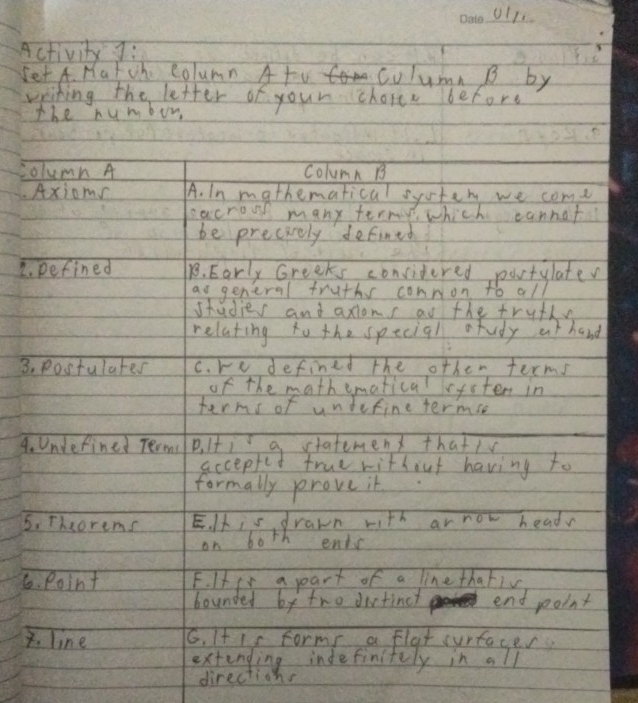 Date
Activity 1:
Set A. Match Column A to Column B by
writing the letter of your choice before
the number.
Column A Column B
. Axioms A. In mathematical system we come
across many terms which cannot
be precisely defined
2. Defined B. Early Greeks considered postylates
as general truths common to all
studies and axioms as the truths
relating to the special study at hand
3. Postulates C. we defined the other terms
of the mathematical system in
terms of undefine terms
4. Undefined Terms D. It is a statement that is
accepted true without having to
formally prove it.
5. Theorems E. It is drawn with arrow heads
on both ends
6. Point F. It is a part of a line that is
bounded by two distinct end point
7. line G. It is forms a flat surfaces
extending indefinitely in all
directions